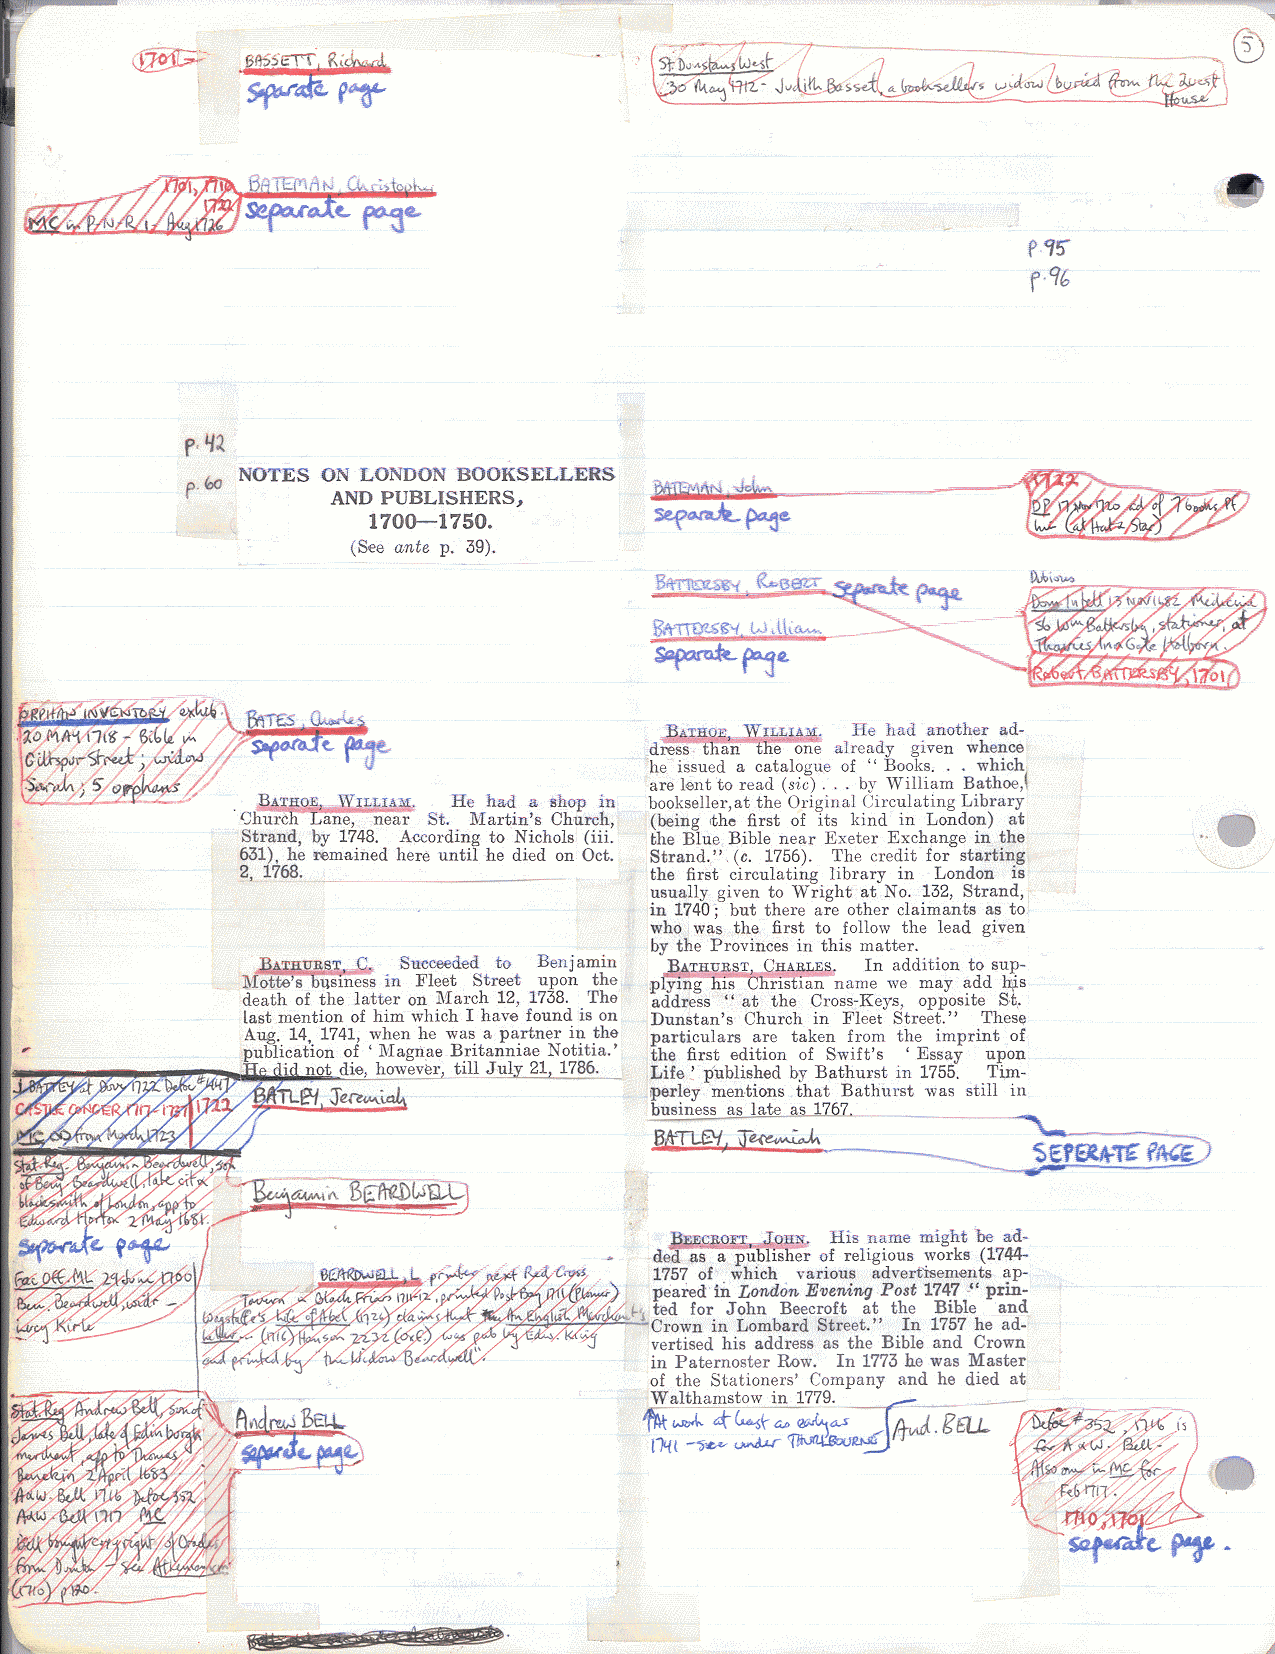 5
1701
BASSETT, Richard
separate page
St. Dunstans West
30 May 1712 - Judith Basset, a booksellers widow buried from the Quest
House
1701, 1710
1722
MC in P-N-R 1 Aug 1726
BATEMAN, Christopher
separate page
p.95
p.96
p.42
p.60
NOTES ON LONDON BOOKSELLERS
AND PUBLISHERS,
1700—1750.
(See ante p. 39).
BATEMAN, John
separate page
1722
DP 17 Nov 1720 ad of 7 books pf
(at Hat & Star)
BATTERSBY, ROBERT separate page
BATTERSBY, William
separate page
Dubious
Dom Intell 13 NOV 1682 Medicine
So Wm Battersby, stationer, at
Thavies Inn Gate Holborn.
Robert BATTERSBY, 1701
ORPHAN INVENTORY exhib.
20 MAY 1718 - Bible in
Giltspur Street; widow
Sarah; 5 orphans
BATES, Charles
separate page
BATHOE, WILLIAM. He had a shop in
Church Lane, near St. Martin's Church,
Strand, by 1748. According to Nichols (iii.
631), he remained here until he died on Oct.
2, 1768.
BATHURST, C. Succeeded to Benjamin
Motte's business in Fleet Street upon the
death of the latter on March 12, 1738. The
last mention of him which I have found is on
Aug. 14, 1741, when he was a partner in the
publication of ' Magnae Britanniae Notitia.'
He did not die, however, till July 21, 1786.
BATHOE, WILLIAM. He had another ad-
dress than the one already given whence
he issued a catalogue of " Books. . . which
are lent to read (sic) . . . by William Bathoe,
bookseller, at the Original Circulating Library
(being the first of its kind in London) at
the Blue Bible near Exeter Exchange in the
Strand." (c. 1756). The credit for starting
the first circulating library in London is
usually given to Wright at No. 132, Strand,
in 1740; but there are other claimants as to
who was the first to follow the lead given
by the Provinces in this matter.
BATHURST, CHARLES. In addition to sup-
plying his Christian name we may add his
address " at the Cross-Keys, opposite St.
Dunstan's Church in Fleet Street." These
particulars are taken from the imprint of
the first edition of Swift's ' Essay upon
Life ' published by Bathurst in 1755. Tim-
perley mentions that Bathurst was still in
business as late as 1767.
J BATLEY at Dove 1722 Defoe #447
CASTLE CONGER 1717-1737 1722
MC from March 1723
BATLEY, Jeremiah
BATLEY, Jeremiah
SEPERATE PAGE
Stat. Reg. Benjamin Beardwell, son
of Benj. Beardwell, late cit &
blacksmith of London, app to
Edward Horton 2 May 1681.
separate page
Benjamin BEARDWELL
Fac Off ML 29 June 1700
Ben. Beardwell, widr -
Lucy Kirle
BEARDWELL, L printer next Red Cross
Tavern in Black Friars 1711-12, printed Post Boy 1711 (Plomer)
Wagstaffe's Life of Abel (1725) claims that An English Merchant's
letter... (1716) Hanson 2232 (Oxf.) was pub by Edw. King
and printed by "the Widow Beardwell".
BEECROFT, JOHN. His name might be ad-
ded as a publisher of religious works (1744-
1757 of which various advertisements ap-
peared in London Evening Post 1747 " prin-
ted for John Beecroft at the Bible and
Crown in Lombard Street." In 1757 he ad-
vertised his address as the Bible and Crown
in Paternoster Row. In 1773 he was Master
of the Stationers' Company and he died at
Walthamstow in 1779.
At work at least as early as
1741 - see under THURLBOURNE
Stat. Reg Andrew Bell, son of
James Bell, late of Edinburgh
merchant, app to Thomas
2 April 1683
A & W. Bell 1716 Defoe 352
A & W. Bell 1717 MC
Bell bought copyright of
from Dunton - see
(1710) p120.
Andrew BELL
separate page
And. BELL
Defoe #352, 1716 is
for A & W. Bell -
Also one in MC for
Feb 1717.
1710, 1701
separate page.